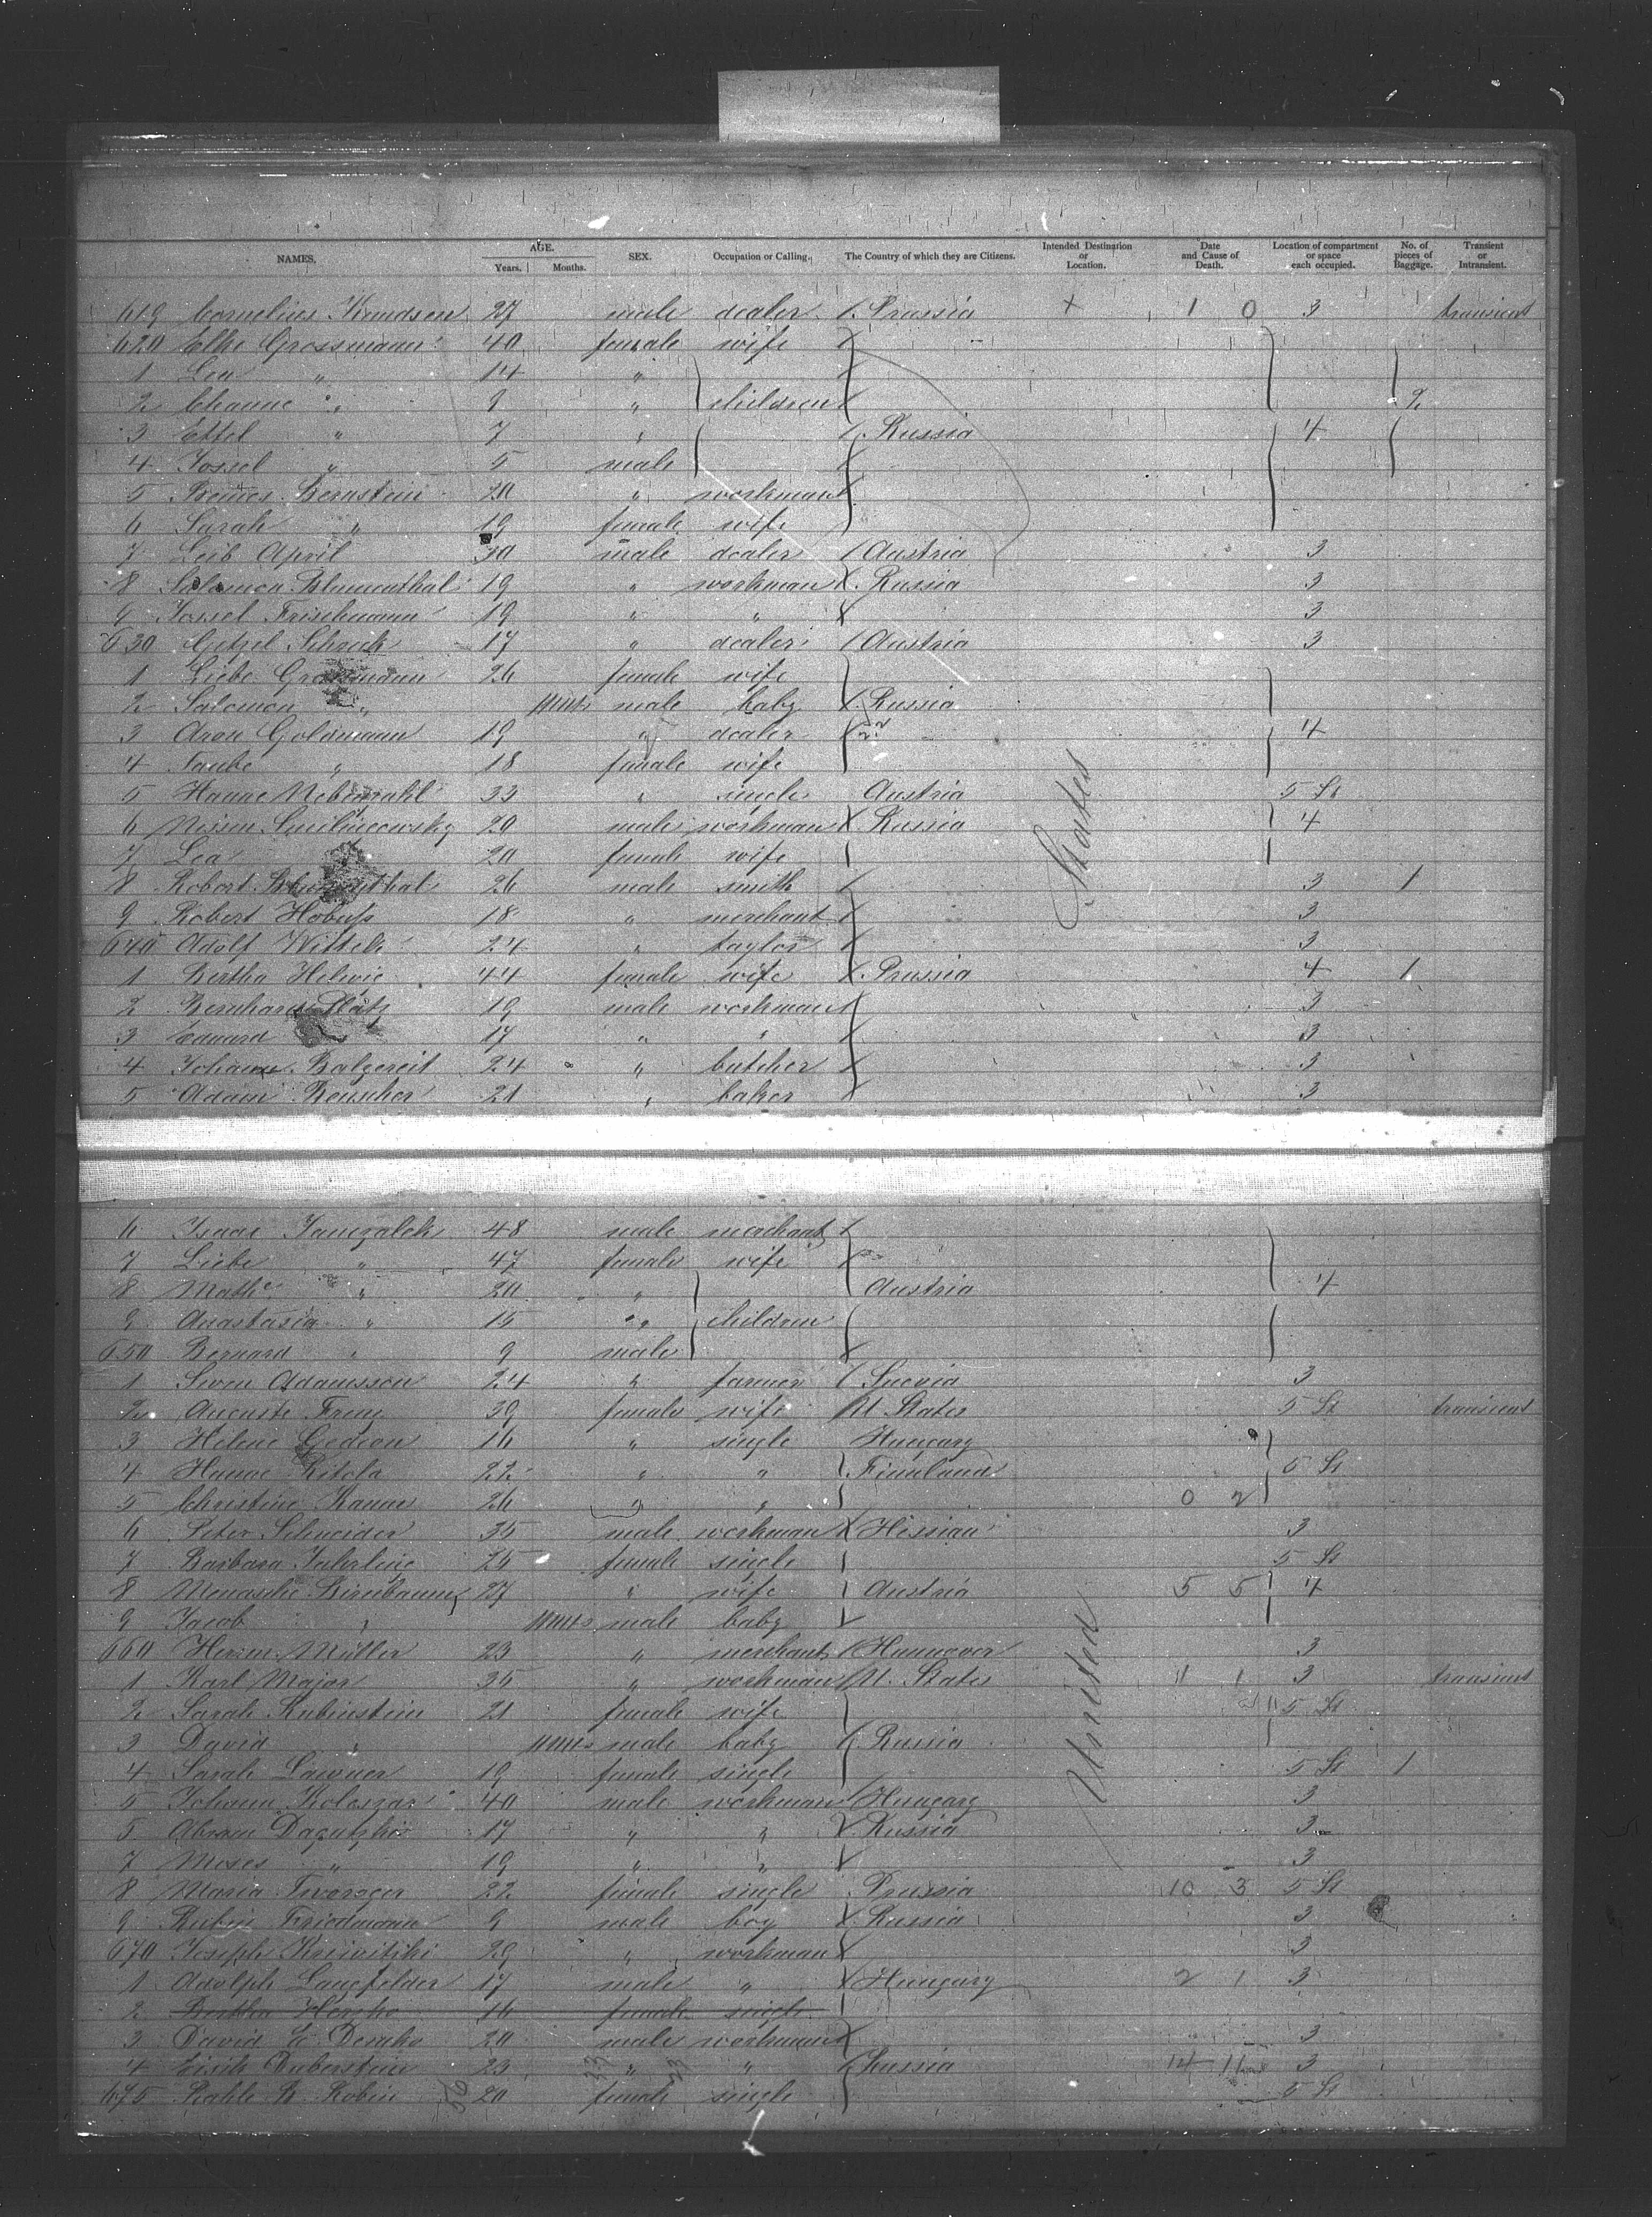 NAMES. AGE. Years. Months. SEX. Occupation or Calling. The Country of which they are Citizens. Intended Destination or Location. Date and Cause of Death. Location of compartment or space each occupied. No. of pieces of Baggage. Transient or Intransient.
619 Cornelius Knudsen 27 male dealer Prussia 1 0 3 transient
620 Elke Grossmann 40 female wife
1 Lea " 14 "
2 Channe " 9 " children 2
3 Ettel " 7 " Russia 4
4 Jossel " 5 male
5 Bernstein 20 " workman
6 Sarah " 19 female wife
7 Leib April 30 male dealer Austria 3
8 Salomon Blumenthal 19 " workman Russia 3
9 Jossel Frischmann 19 " " 3
630 Getzel Schreck 17 " dealer Austria 3
1 Liebe Grossmann 26 female wife
2 Salomon " male baby Russia
3 Aron Goldmann 19 " dealer 4
4 Taube " 18 female wife
5 Hanne 33 " single Austria 5 St
6 Nissen 20 male workman Russia 4
7 Lea 20 female wife
8 Robert Blumenthal 26 male smith 3 1
9 Robert Hobuss 18 " merchant 3
640 Adolf Wittek 24 " taylor 3
1 Bertha Helwig 44 female wife Prussia 4 1
2 Bernhard Plätz 19 male workman 3
3 Edward 17 " " 3
4 Johann Balzereit 24 " butcher 3
5 Adam Reuscher 21 " baker 3
States
6 Isaac 48 male merchant
7 Liebe " 47 female wife
8 Mathe " 20 " Austria 4
9 Anastasia " 15 " children
650 Bernard " 9 male
1 Swen Adamsson 24 " farmer Suecia 3
2 Auguste Frey 39 female wife U. States 5 St transient
3 Helene Gedeon 16 " single Hungary
4 Hanne Ritola 22 " " Finnland 5 St
5 Christine 26 " " 0 2
6 Peter Schneider 35 male workman Hessian 3
7 Barbara 25 female single 5 St
8 Menasche Birnbaum 27 " wife Austria 5 5 4
9 Jacob " male baby
660 Herm. Müller 23 " merchant Hannover 3
1 Karl Major 35 " workman U. States 11 1 3 transient
2 Sarah Rubinstein 21 female wife 5 St
3 David " male baby Russia
4 Sarah Lawner 19 female single 5 St 1
5 Johann Koloszar 40 male workman Hungary 3
5 Abram 17 " " Russia 3
7 Moses " 19 " " 3
8 Maria 22 female single Prussia 10 3 5 St
9 Rubin Friedmann 9 male boy Russia 3
670 Joseph 29 " workman 3
1 Adolph Langfelder 17 male " Hungary 2 1 3
2 Bertha 16 female single
3 David 20 male workman 3
4 Eisik Duberstein 23 " " Russia 14 3
675 Rahle B. Robin 20 female single 5 St
United